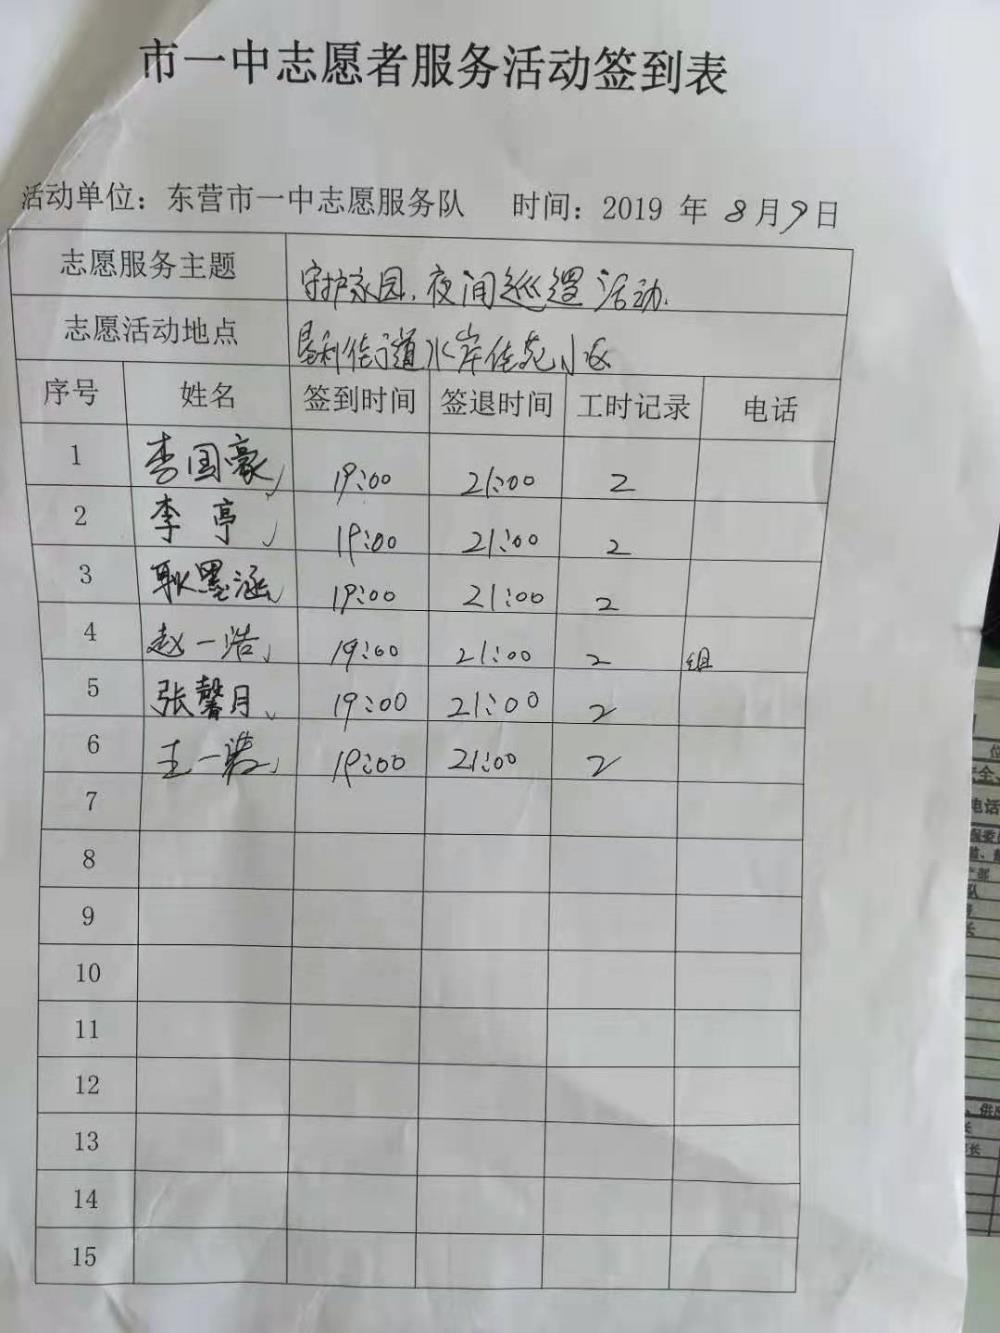 市一中志愿者服务活动签到表
活动单位：东营市一中志愿服务队 时间：2019 年 8月9日
志愿服务主题 守护家园、夜间巡逻活动.
志愿活动地点 垦利街道水岸佳苑小区
序号 姓名 签到时间 签退时间 工时记录 电话
1 李国豪 19:00 21:00 2
2 李亭 19:00 21:00 2
3 耿墨涵 19:00 21:00 2
4 赵一浩 19:00 21:00 2 组
5 张馨月 19:00 21:00 2
6 王一诺 19:00 21:00 2
7
8
9
10
11
12
13
14
15